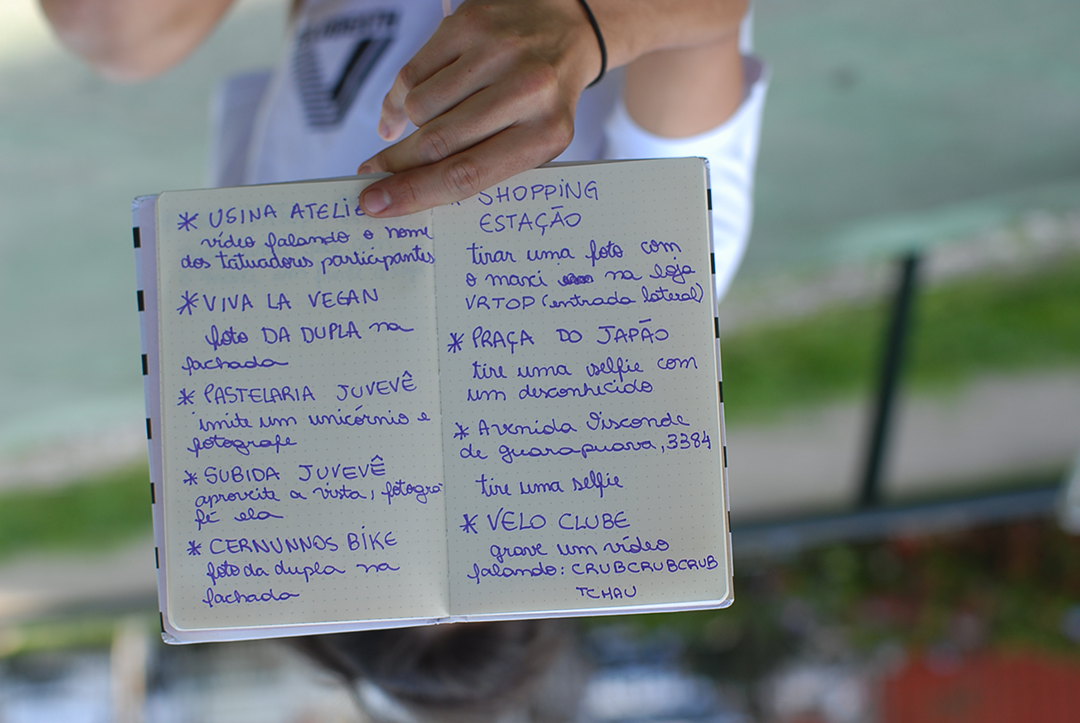 * USINA ATELIE
vídeo falando o nome
dos tatuadores participantes
* VIVA LA VEGAN
foto DA DUPLA na
fachada
* PASTELARIA JUVEVÊ
imite um unicórnio e
fotografe
* SUBIDA JUVEVÊ
aproveite a vista, fotogra
fé ela
* CERNUNNOS BIKE
foto da dupla na
fachada
* SHOPPING
ESTAÇÃO
tirar uma foto com
o marci na loja
VRTOP (entrada lateral)
* PRAÇA DO JAPÃO
tire uma selfie com
um desconhecido
* Avenida Visconde
de guarapuava, 3384
tire uma selfie
* VELO CLUBE
grave um vídeo
falando: CRUBCRUBCRUB
TCHAU